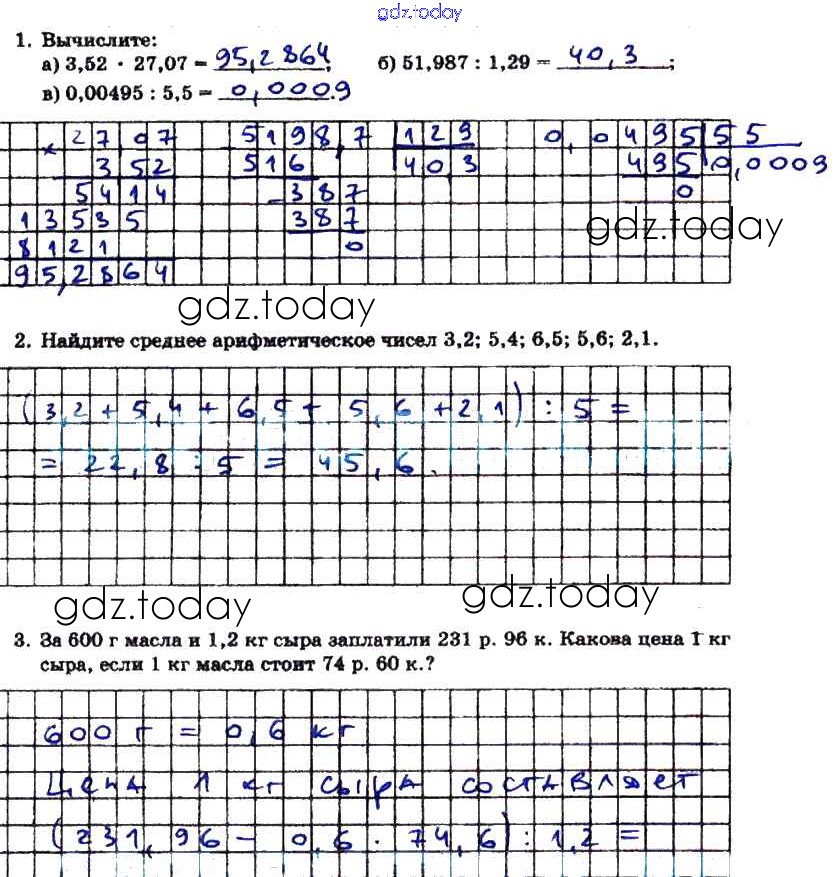 gdz.today
1. Вычислите:
а) 3,52 · 27,07 = 95,2864; б) 51,987 : 1,29 = 40,3;
в) 0,00495 : 5,5 = 0,0009
× 27,07 5198,7 129 0,0495 55
352 516 40,3 495 0,0009
5414 - 387 0
13535 387
8121 0
95,2864
gdz.today
gdz.today
2. Найдите среднее арифметическое чисел 3,2; 5,4; 6,5; 5,6; 2,1.
(3,2 + 5,4 + 6,5 + 5,6 + 2,1) : 5 =
= 22,8 : 5 = 45,6.
gdz.today
gdz.today
3. За 600 г масла и 1,2 кг сыра заплатили 231 р. 96 к. Какова цена 1 кг
сыра, если 1 кг масла стоит 74 р. 60 к.?
600 г = 0,6 кг
Цена 1 кг сыра составляет
(231,96 - 0,6 · 74,6) : 1,2 =